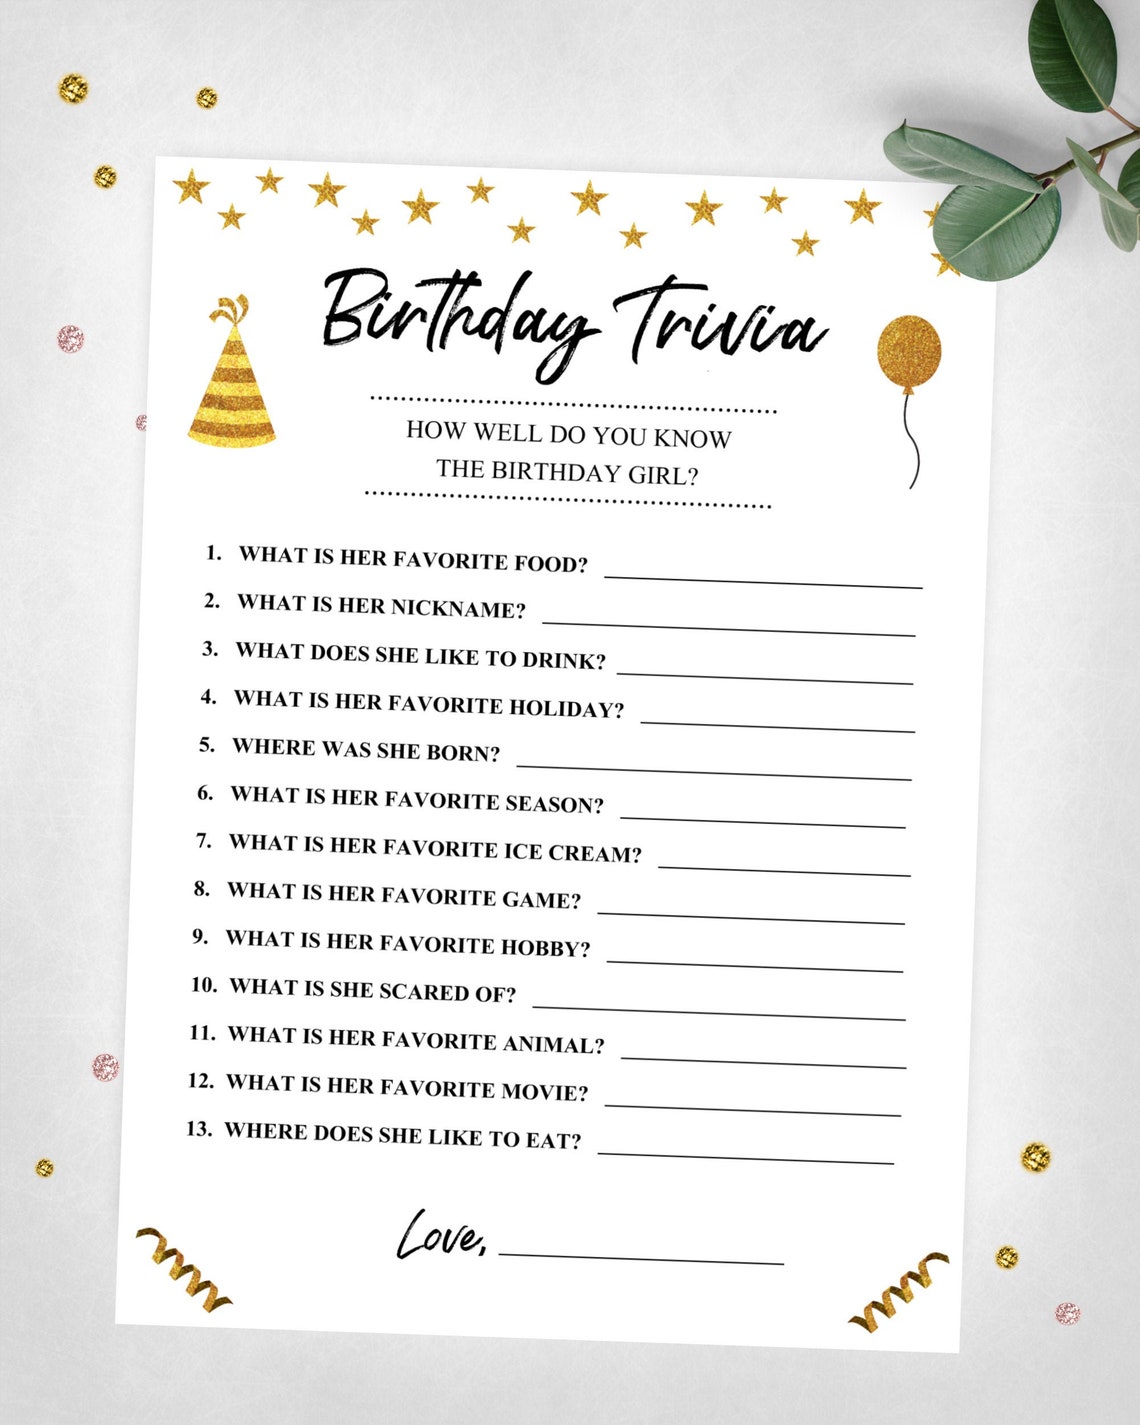 Birthday Trivia
HOW WELL DO YOU KNOW
THE BIRTHDAY GIRL?
1. WHAT IS HER FAVORITE FOOD?
2. WHAT IS HER NICKNAME?
3. WHAT DOES SHE LIKE TO DRINK?
4. WHAT IS HER FAVORITE HOLIDAY?
5. WHERE WAS SHE BORN?
6. WHAT IS HER FAVORITE SEASON?
7. WHAT IS HER FAVORITE ICE CREAM?
8. WHAT IS HER FAVORITE GAME?
9. WHAT IS HER FAVORITE HOBBY?
10. WHAT IS SHE SCARED OF?
11. WHAT IS HER FAVORITE ANIMAL?
12. WHAT IS HER FAVORITE MOVIE?
13. WHERE DOES SHE LIKE TO EAT?
Love,